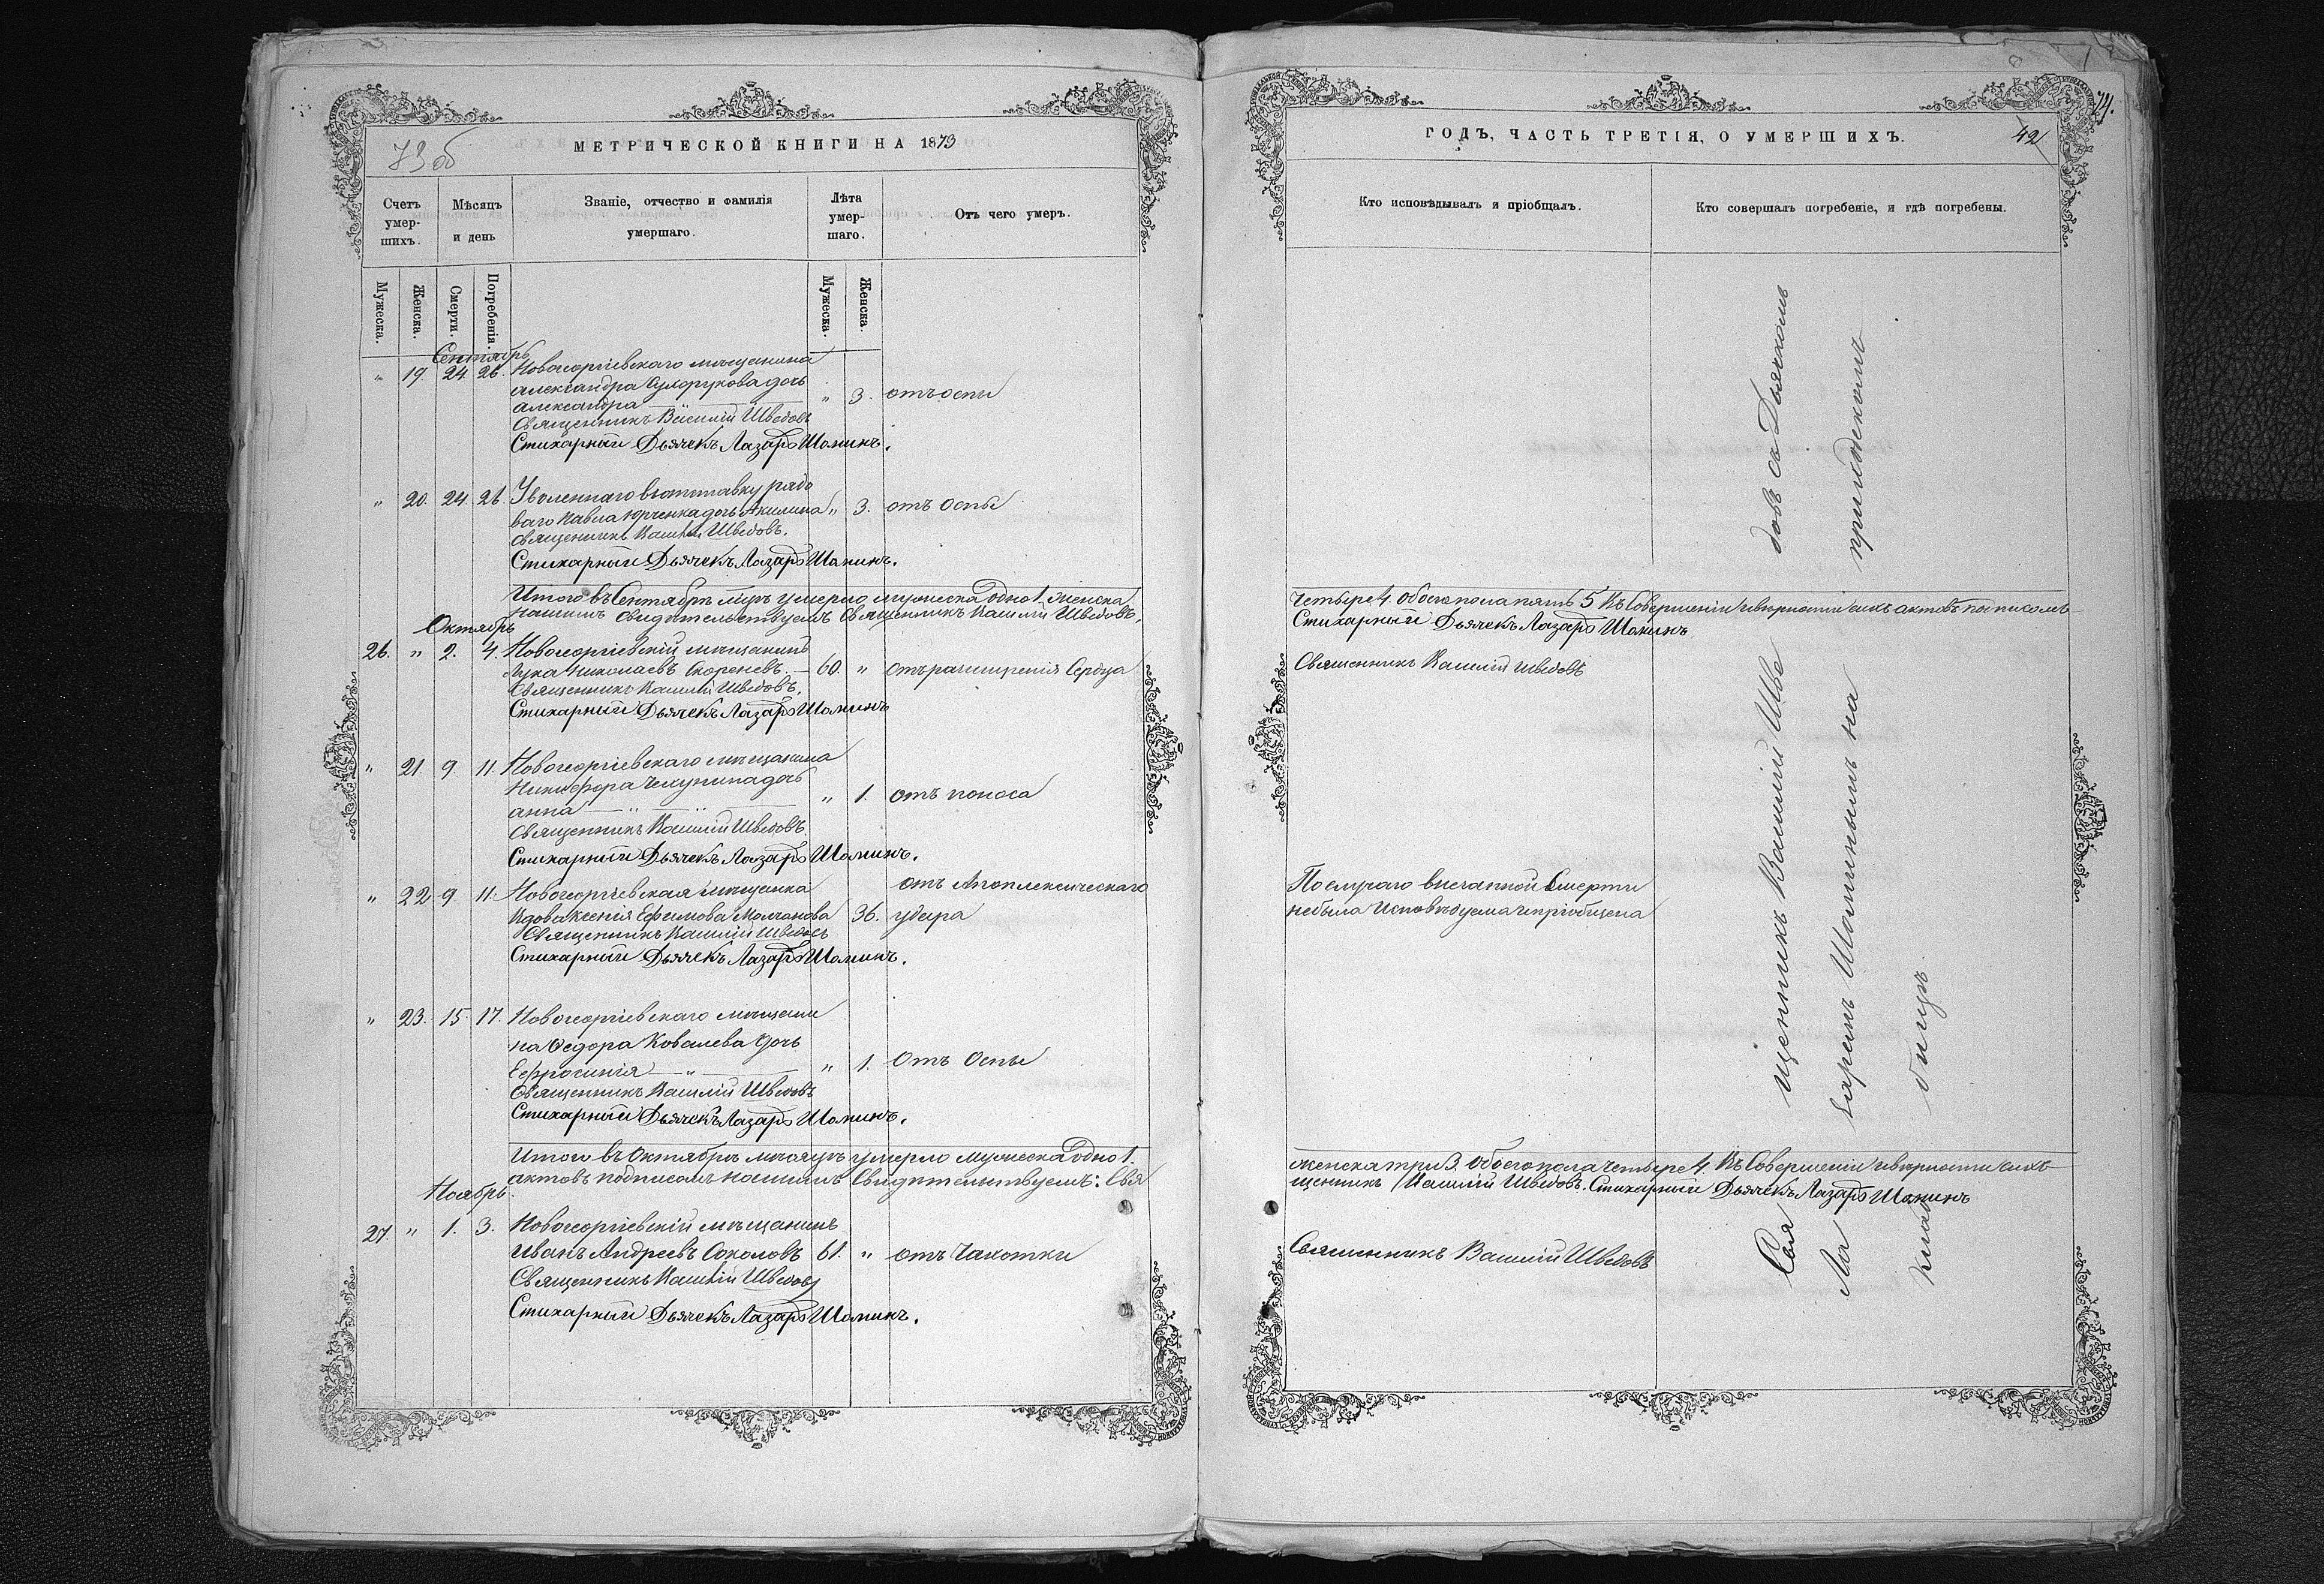 73 об
МЕТРИЧЕСКОЙ КНИГИ НА 1873
Счетъ умер-шихъ.
Мѣсяцъ и день
Званіе, отчество и фамилія умершаго.
Лѣта умер-шаго.
Отъ чего умеръ.
Мужеска.
Женска.
Смерти.
Погребенія.
Мужеска.
Женска.
Сентябрь
" 19. 24. 26. Новогеоргіевскаго мѣщанина
александра дочь
александра " 3. отъ оспы
Священникъ Василій Шведовъ
Стихарный Дьячекъ Лазарь Шаминъ.
" 20. 24. 26. Уволеннаго въ отставку рядо
ваго Павла Юрченка дочь Акилина " 3. отъ оспы
Священникъ Василій Шведовъ.
Стихарный Дьячекъ Лазарь Шаминъ.
Итого въ Сентябрѣ м-цѣ умерло мужеска одно 1. женска
нашимъ свидѣтельствуемъ Священникъ Василій Шведовъ,
Октябрь
26. " 2. 4. Новогеоргіевскій мѣщанинъ
Лука Николаевъ — 60. " отъ расширенія Сердца
Священникъ Василій Шведовъ.
Стихарный Дьячекъ Лазарь Шаминъ
" 21. 9. 11. Новогеоргіевскаго мѣщанина
Никифора дочь
анна " 1. отъ поноса
Священникъ Василій Шведовъ.
Стихарный Дьячекъ Лазарь Шаминъ.
" 22 9. 11. Новогеоргіевская мѣщанка отъ Апоплексическаго
Вдова Ксенія Ефимова Молчанова 36. удара
Священникъ Василій Шведовъ
Стихарный Дьячекъ Лазарь Шаминъ.
" 23. 15. 17. Новогеоргіевскаго мѣщани
на Ѳедора Ковалева дочь
Ефросинія — " — " 1. Отъ Оспы
Священникъ Василій Шведовъ
Стихарный Дьячекъ Лазарь Шаминъ.
Итого въ Октябрѣ мѣсяцѣ умерло мужеска одно 1.
актовъ подписомъ нашимъ Свидѣтельствуемъ: Свя
Ноябрь.
27. " 1. 3. Новогеоргіевскій мѣщанинъ
Иванъ Андреевъ Соколовъ 61. " отъ Чахотки
Священникъ Василій Шведовъ
Стихарный Дьячекъ Лазарь Шаминъ.
74.
ГОДЪ, ЧАСТЬ ТРЕТІЯ, О УМЕРШИХЪ.
42
Кто исповѣдывалъ и пріобщалъ.
Кто совершалъ погребеніе, и гдѣ погребены.
четыре 4. обоего пола пять 5 Къ Совершеніи и вѣрности сихъ актовъ подписомъ
Стихарный Дьячекъ Лазарь Шаминъ
Священникъ Василій Шведовъ
По случаю внезапной Смерти
небыла исповѣдуема и пріобщена
женска три 3. обоего пола четыре 4. Къ Совершеніи и вѣрности сихъ
щенникъ Василій Шведовъ. Стихарный Дьячекъ Лазарь Шаминъ
Священникъ Василій Шведовъ
Священникъ Василій Шведовъ съ Дьячкомъ
Лазаремъ Шаминымъ на приходскомъ
кладбищѣ